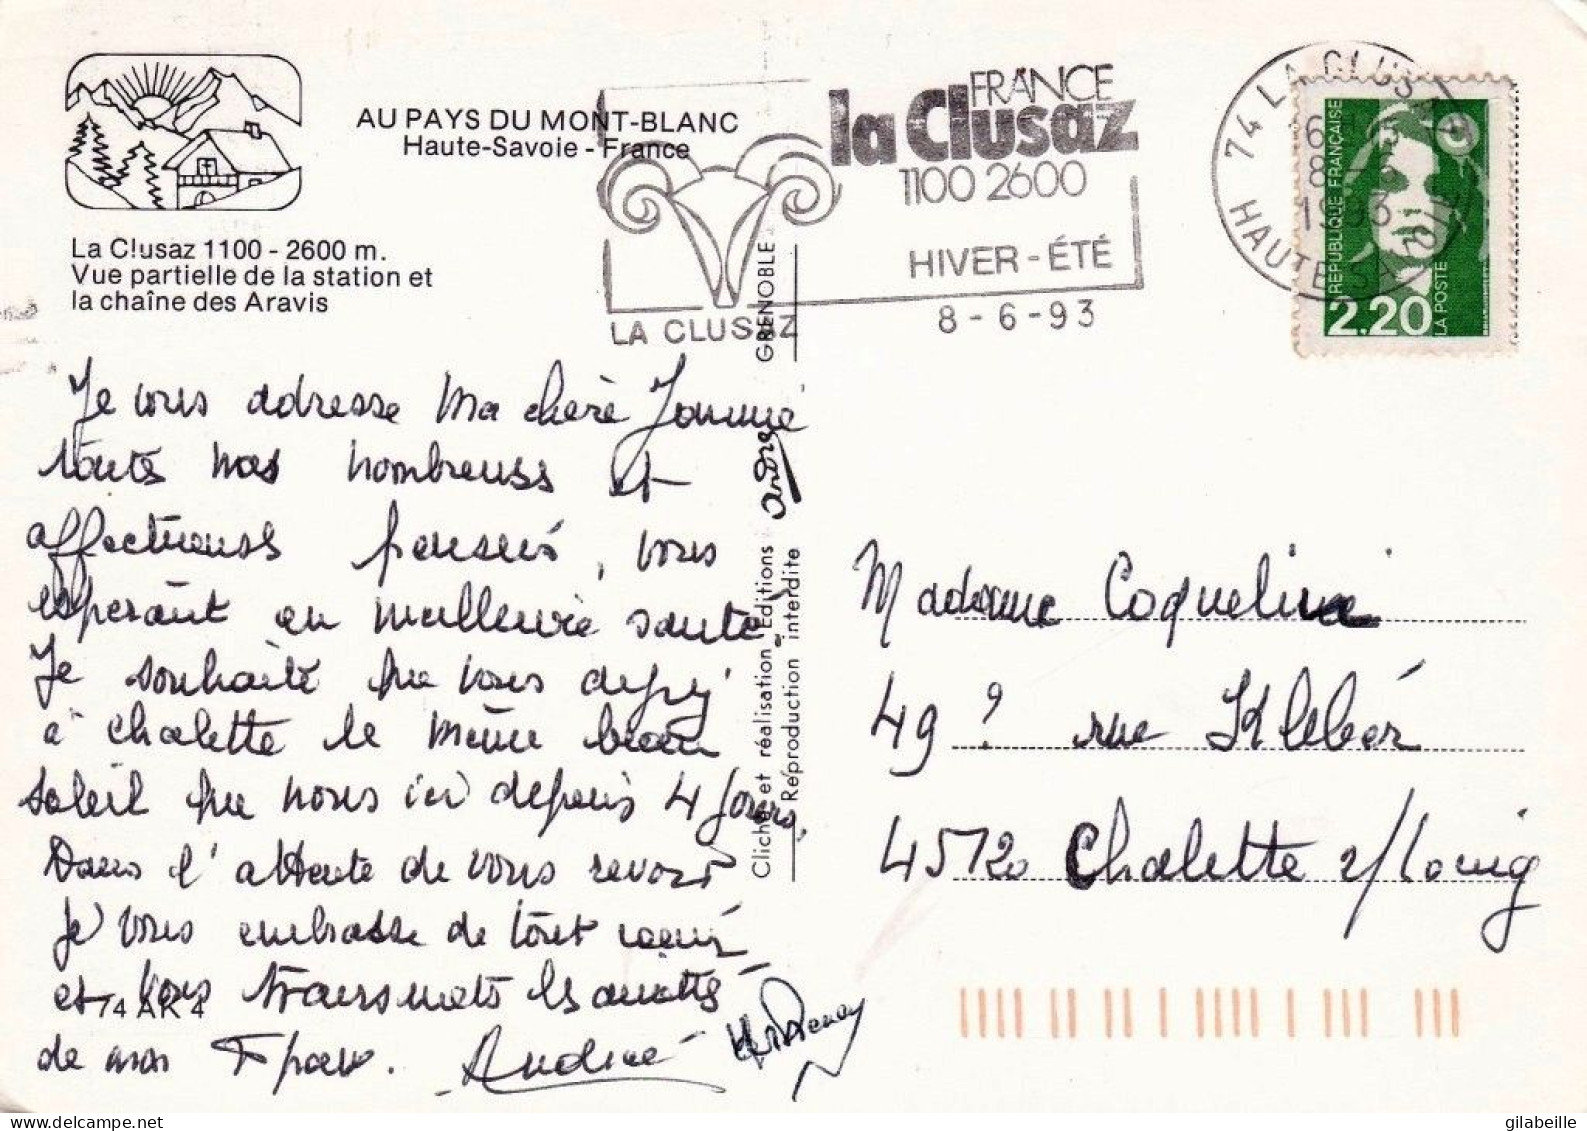 AU PAYS DU MONT-BLANC
Haute-Savoie - France
La Clusaz 1100 - 2600 m.
Vue partielle de la station et
la chaîne des Aravis
FRANCE
la Clusaz
1100 2600
HIVER - ÉTÉ
LA CLUSAZ
8 - 6 - 93
74 LA CLUSAZ
1993
HAUTE SAVOIE
RÉPUBLIQUE FRANÇAISE
2.20
LA POSTE
Je vous adresse Ma chère
toutes mes nombreuses et
affectueuses pensées, vous
espérant en meilleure santé
Je souhaite que vous
à Chalette le même beau
soleil que nous ici depuis 4 jours.
Dans l'attente de vous revoir
je vous embrasse de tout coeur
et vous transmets les amitiés
de mon Epoux. Andrée
GRENOBLE
andré
Clichés et réalisation Editions
Reproduction interdite
Madame Coqueline
49 ? rue Kléber
45120 Chalette s/Loing
74 AK 4
gilabeille